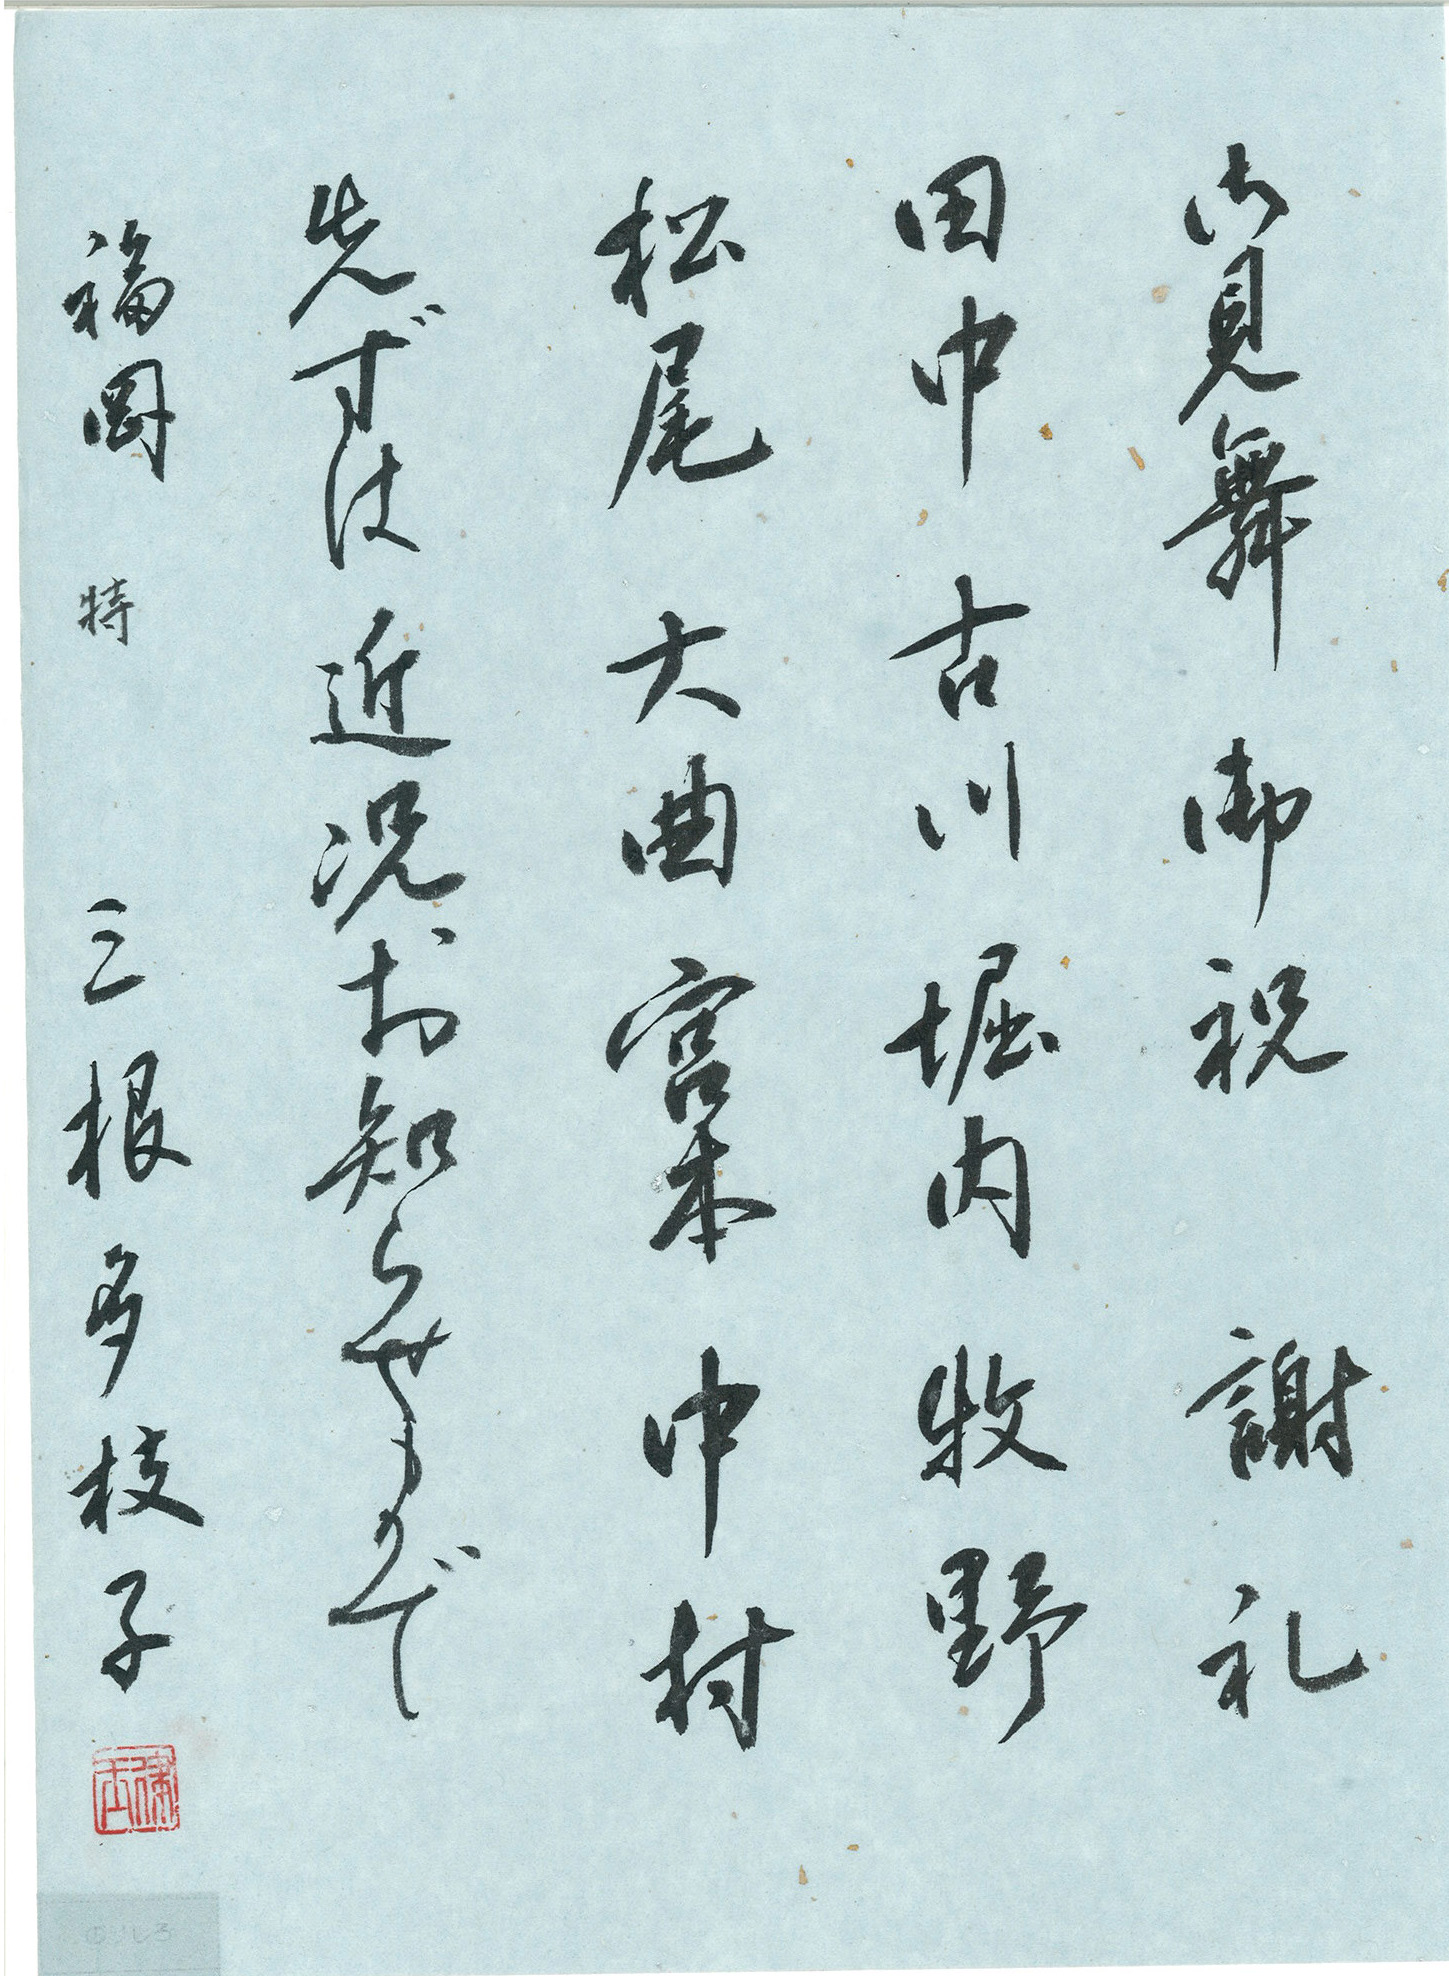 御見舞 御祝 謝礼
田中 古川 堀内 牧野
松尾 大曲 宮本 中村
先ずは近況お知らせまで
福岡 特 三根多枝子
のりしろ